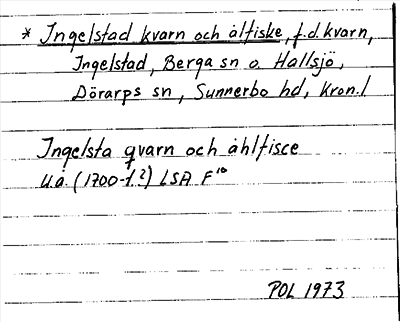 * Ingelstad kvarn och ålfiske, f.d. kvarn,
Ingelstad, Berga sn o. Hallsjö,
Dörarps sn, Sunnerbo hd, Kron.l
Ingelsta qvarn och åhlfisce
u.å. (1700-t.?) LSA F¹⁰
POL 1973